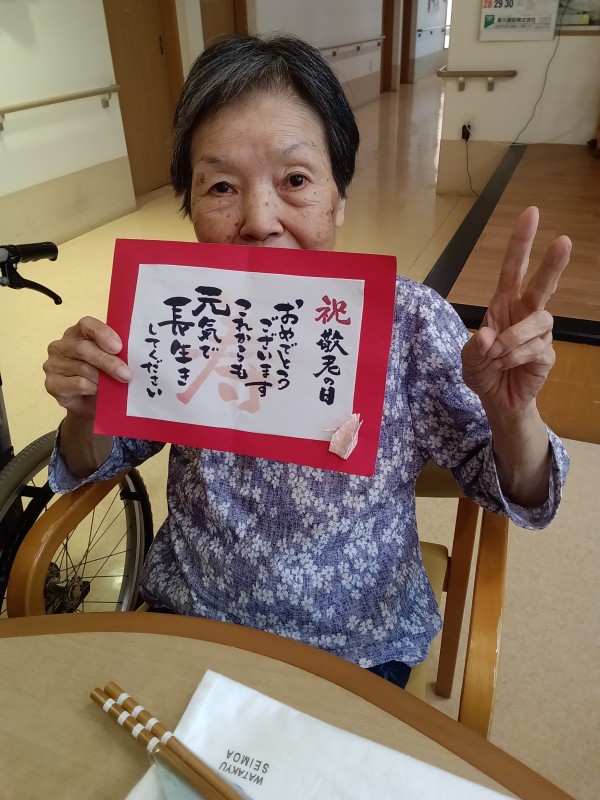 祝 敬老の日
おめでとう
ございます
これからも
元気で
長生き
してください
寿
28 29 30
WATAKYU
SEIMOA